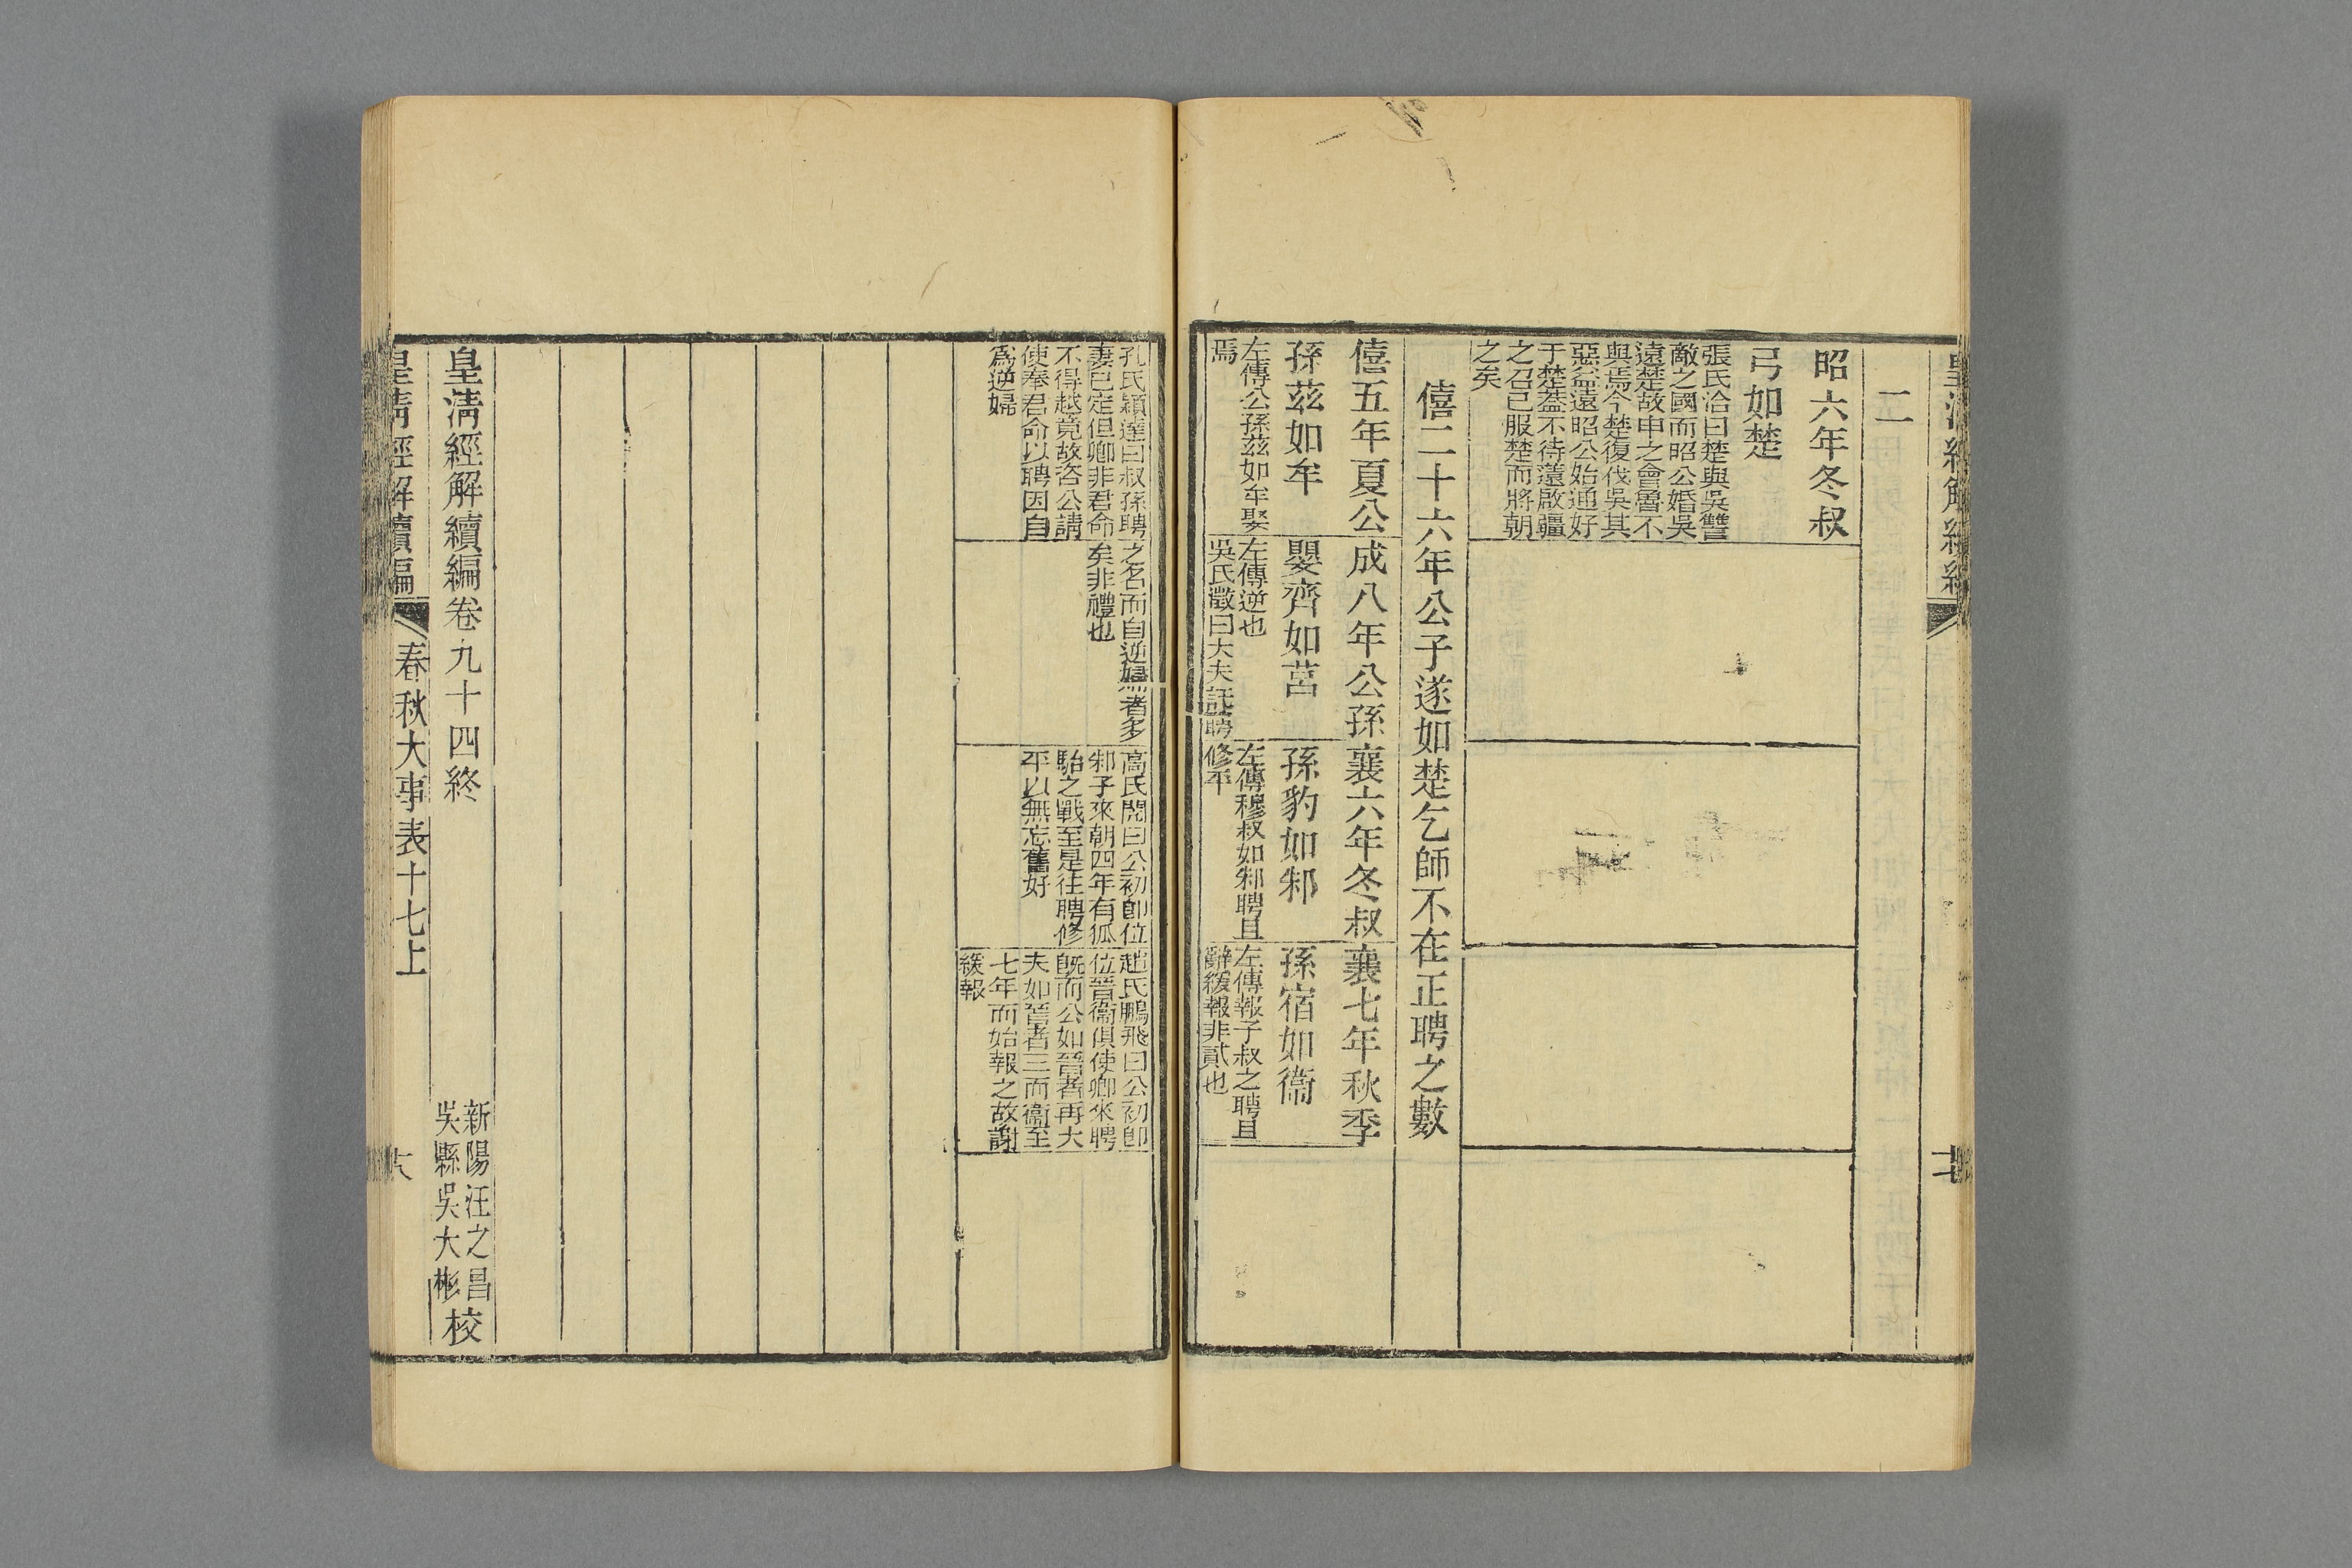 二
昭六年冬叔
弓如楚
張氏洽曰楚與吳讐
敵之國而昭公婚吳
遠楚故申之會魯不
與焉今楚復伐吳其
惡益遠昭公始通好
于楚葢不待薳啟疆
之召已服楚而將朝
之矣
僖二十六年公子遂如楚乞師不在正聘之數
僖五年夏公
孫茲如牟
左傳公孫茲如牟娶
焉
成八年公孫
嬰齊如莒
左傳逆也
吳氏澂曰大夫託聘
襄六年冬叔
孫豹如邾
左傳穆叔如邾聘且
修平
襄七年秋季
孫宿如衞
左傳報子叔之聘且
辭緩報非貳也
孔氏穎達曰叔孫聘
妻已定但卿非君命
不得越竟故咨公請
使奉君命以聘因自
爲逆婦
之名而自逆婦者多
矣非禮也
高氏閌曰公初卽位
邾子來朝四年有狐
駘之戰至是往聘修
平以無忘舊好
趙氏鵬飛曰公初卽
位晉衞俱使卿來聘
旣而公如晉者再大
夫如晉者三而衞至
七年而始報之故謝
緩報
皇清經解續編卷九十四終
新陽汪之昌
吳縣吳大彬
校
皇清經解續編
春秋大事表十七上